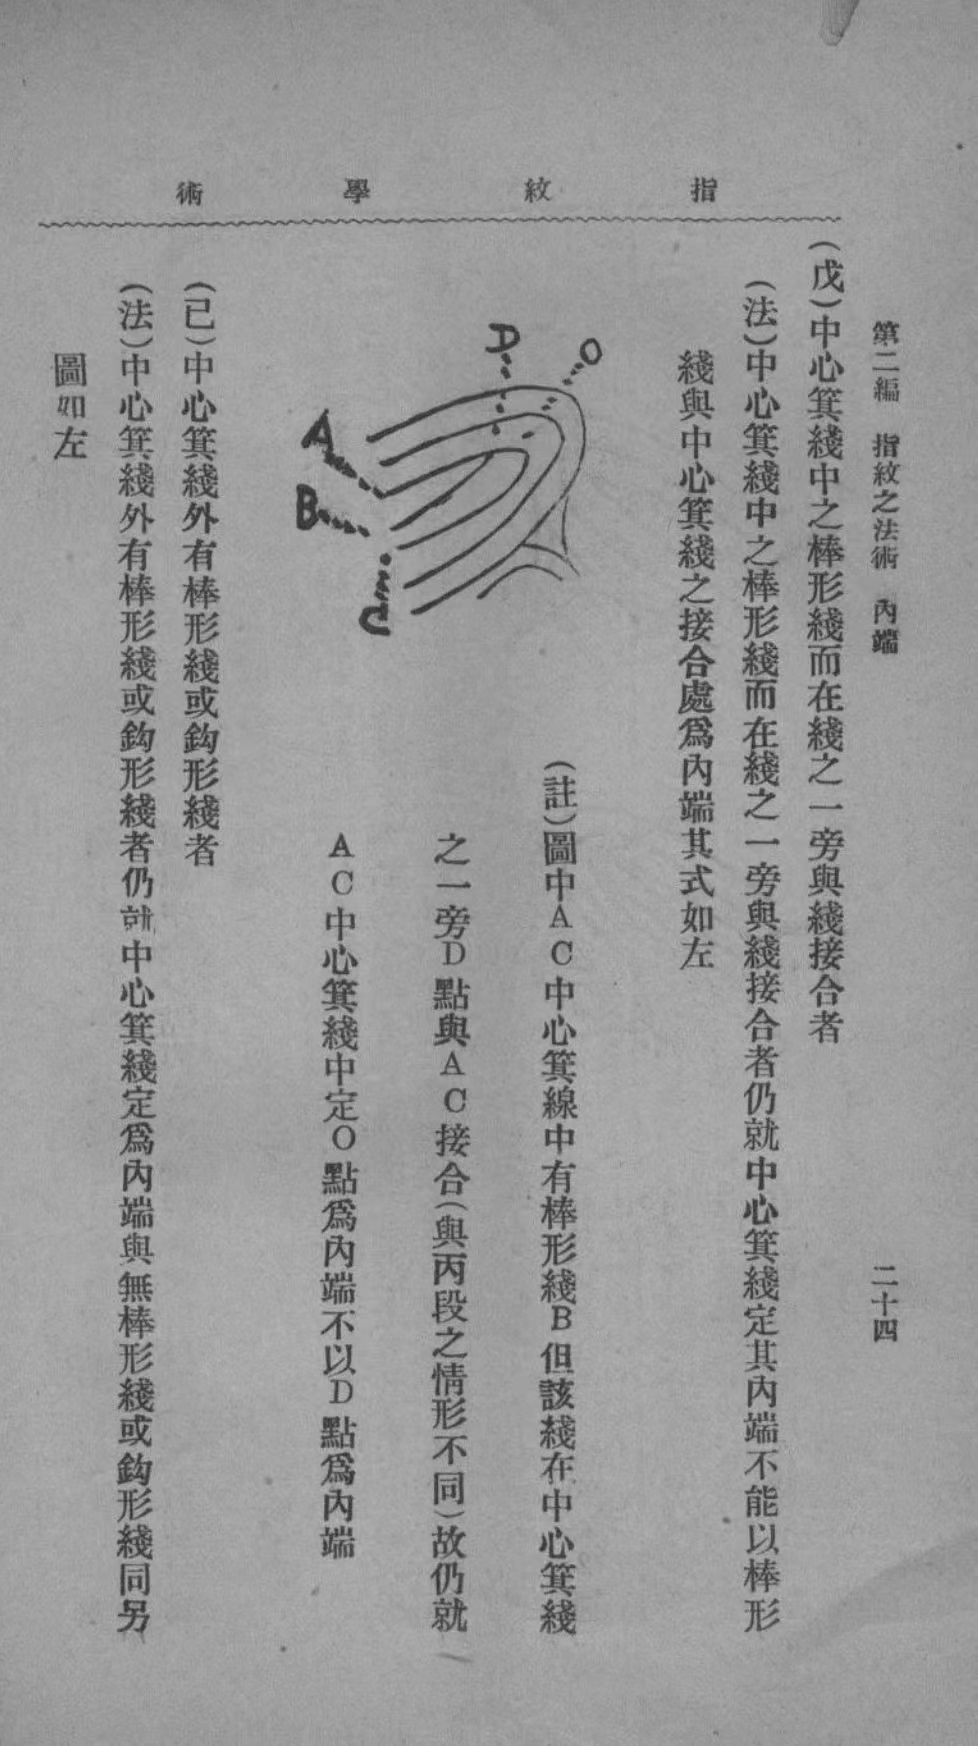 指紋學術
第二編　指紋之法術　內端　二十四
(戊)中心箕綫中之棒形綫而在綫之一旁與綫接合者
(法)中心箕綫中之棒形綫而在綫之一旁與綫接合者仍就中心箕綫定其內端不能以棒形
綫與中心箕綫之接合處爲內端其式如左
O
D
A
B
C
(註)圖中AC中心箕線中有棒形綫B但該綫在中心箕綫
之一旁D點與AC接合(與丙段之情形不同)故仍就
AC中心箕綫中定O點爲內端不以D點爲內端
(已)中心箕綫外有棒形綫或鈎形綫者
(法)中心箕綫外有棒形綫或鈎形綫者仍就中心箕綫定爲內端與無棒形綫或鈎形綫同另
圖如左